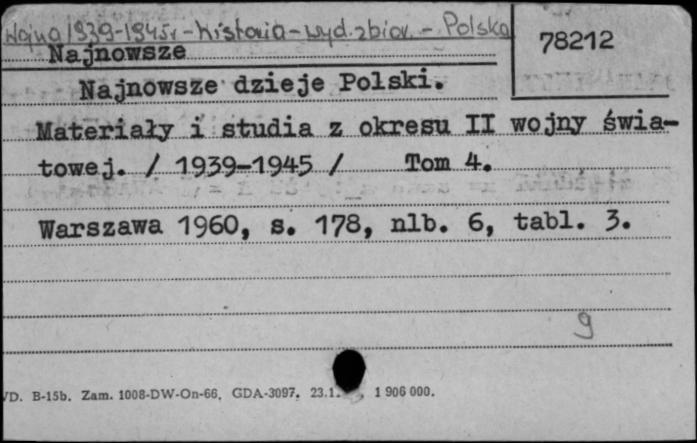 Wojna 1939-1945r - historia - wyd. zbior. - Polska
78212
Najnowsze
Najnowsze dzieje Polski.
Materiały i studia z okresu II wojny świa-
towej. / 1939-1945 / Tom 4.
Warszawa 1960, s. 178, nlb. 6, tabl. 3.
9
D. B-15b. Zam. 1008-DW-On-66, GDA-3097. 23.1. 1 906 000.